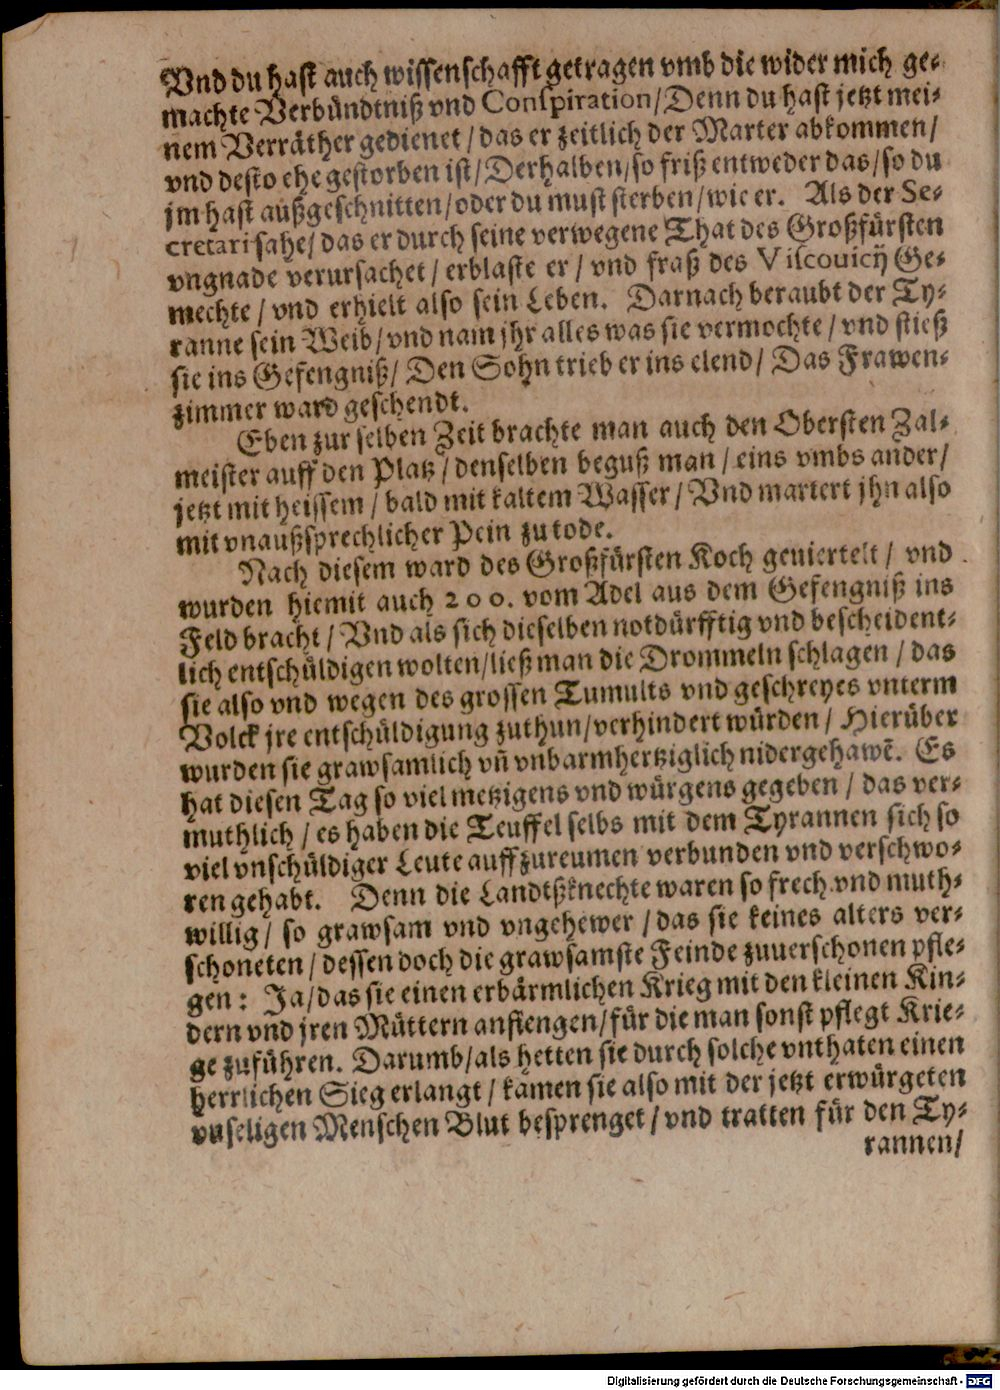 Vnd du hast auch wissenschafft getragen vmb die wider mich ge-
machte Verbündtniß vnd Conspiration/Denn du hast jetzt mei-
nem Verräther gedienet/das er zeitlich der Marter abkommen/
vnd desto ehe gestorben ist/Derhalben/so friß entweder das/so du
jm hast außgeschnitten/oder du must sterben/wie er. Als der Se-
cretari sahe/das er durch seine verwegene That des Großfürsten
vngnade verursachet/erblaste er/vnd fraß des Viscouicij Ge-
mechte/vnd erhielt also sein Leben. Darnach beraubt der Ty-
ranne sein Weib/vnd nam jhr alles was sie vermochte/vnd stieß
sie ins Gefengniß/Den Sohn trieb er ins elend/Das Frawen-
zimmer ward geschendt.
Eben zur selben Zeit brachte man auch den Obersten Zal-
meister auff den Platz/denselben beguß man/eins vmbs ander/
jetzt mit heissem/bald mit kaltem Wasser/Vnd martert jhn also
mit vnaußsprechlicher Pein zu tode.
Nach diesem ward des Großfürsten Koch geuiertelt/vnd
wurden hiemit auch 200. vom Adel aus dem Gefengniß ins
Feld bracht/Vnd als sich dieselben notdürfftig vnd bescheident-
lich entschüldigen wolten/ließ man die Drommeln schlagen/das
sie also vnd wegen des grossen Tumults vnd geschreyes vnterm
Volck jre entschüldigung zuthun/verhindert würden/Hierüber
wurden sie grawsamlich vñ vnbarmhertziglich nidergehawẽ. Es
hat diesen Tag so viel metzigens vnd würgens gegeben/das ver-
muthlich/es haben die Teuffel selbs mit dem Tyrannen sich so
viel vnschüldiger Leute auffzureumen verbunden vnd verschwo-
ren gehabt. Denn die Landtßknechte waren so frech vnd muth-
willig/so grawsam vnd vngehewer/das sie keines alters ver-
schoneten/dessen doch die grawsamste Feinde zuuerschonen pfle-
gen: Ja/das sie einen erbärmlichen Krieg mit den kleinen Kin-
dern vnd jren Müttern anfiengen/für die man sonst pflegt Krie-
ge zuführen. Darumb/als hetten sie durch solche vnthaten einen
herrlichen Sieg erlangt/kamen sie also mit der jetzt erwürgeten
vnseligen Menschen Blut besprenget/vnd tratten für den Ty-
rannen/
Digitalisierung gefördert durch die Deutsche Forschungsgemeinschaft - DFG